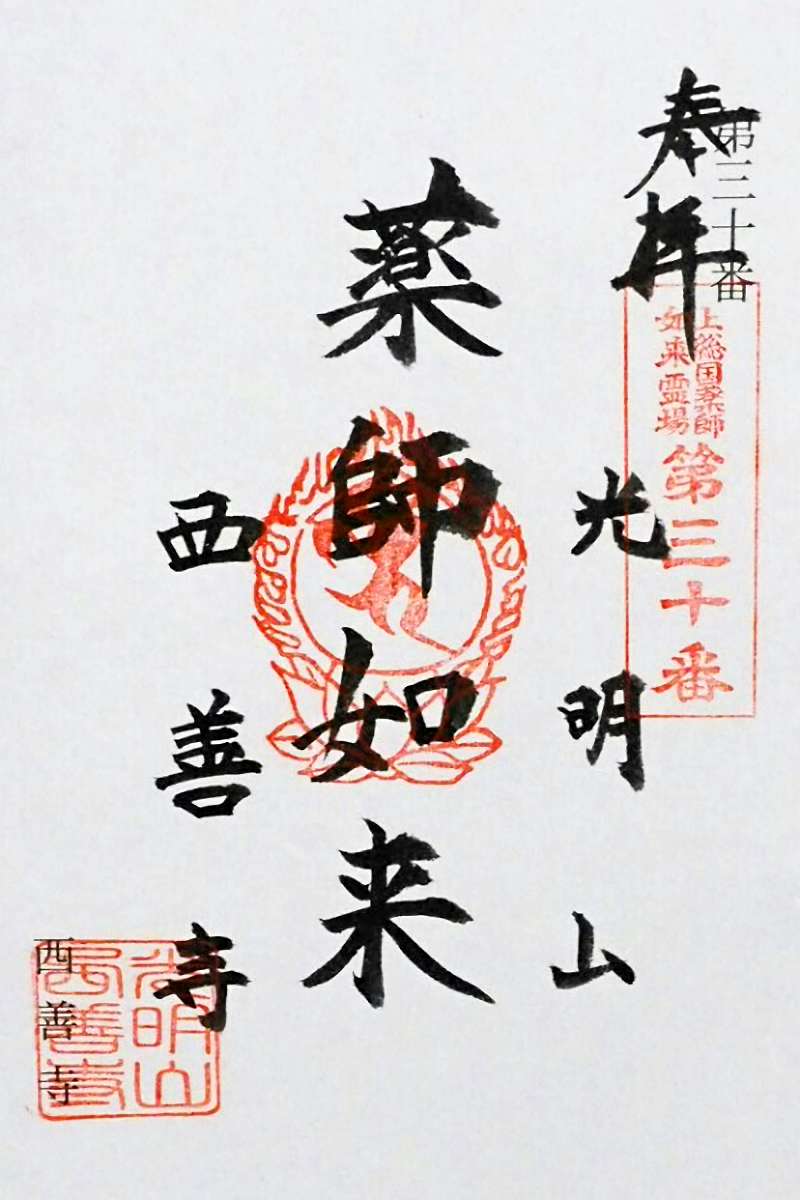 第三十番
奉拝
上総国薬師
如来霊場
第三十番
光明山
薬師如来
西善寺
光明山
西善寺
西善寺